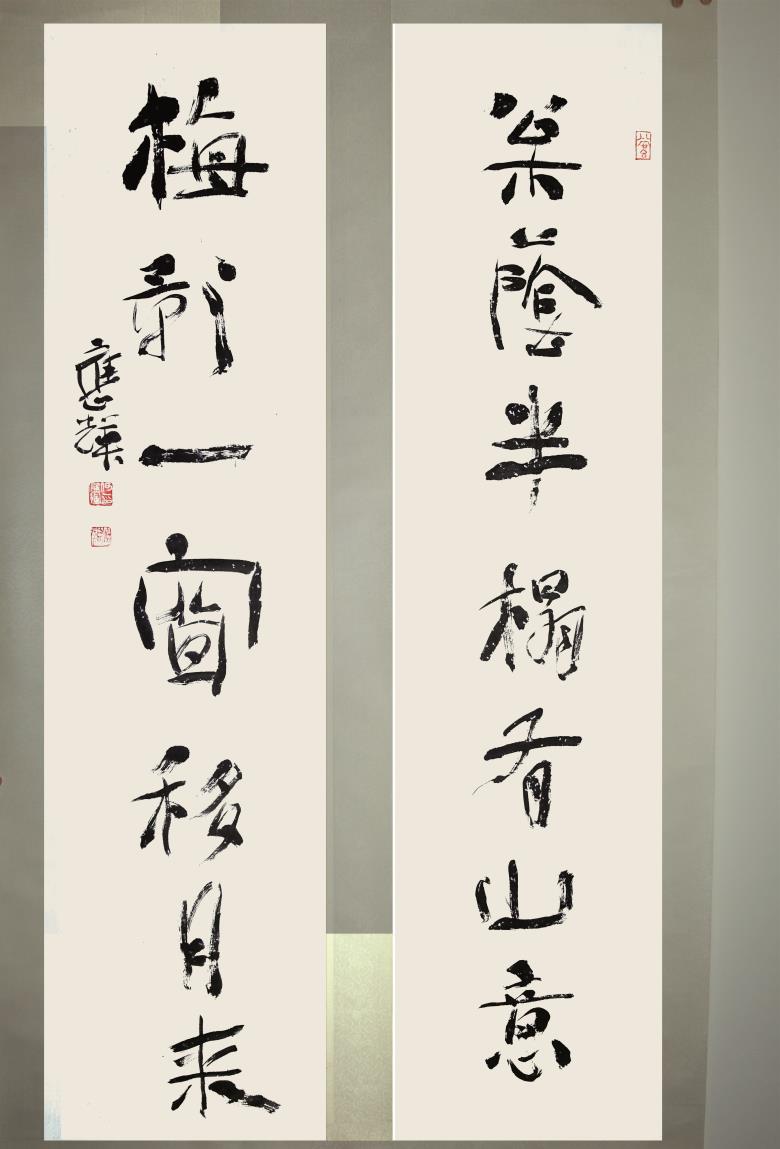 枀蔭半榻有山意
梅影一窗移月来
應輝